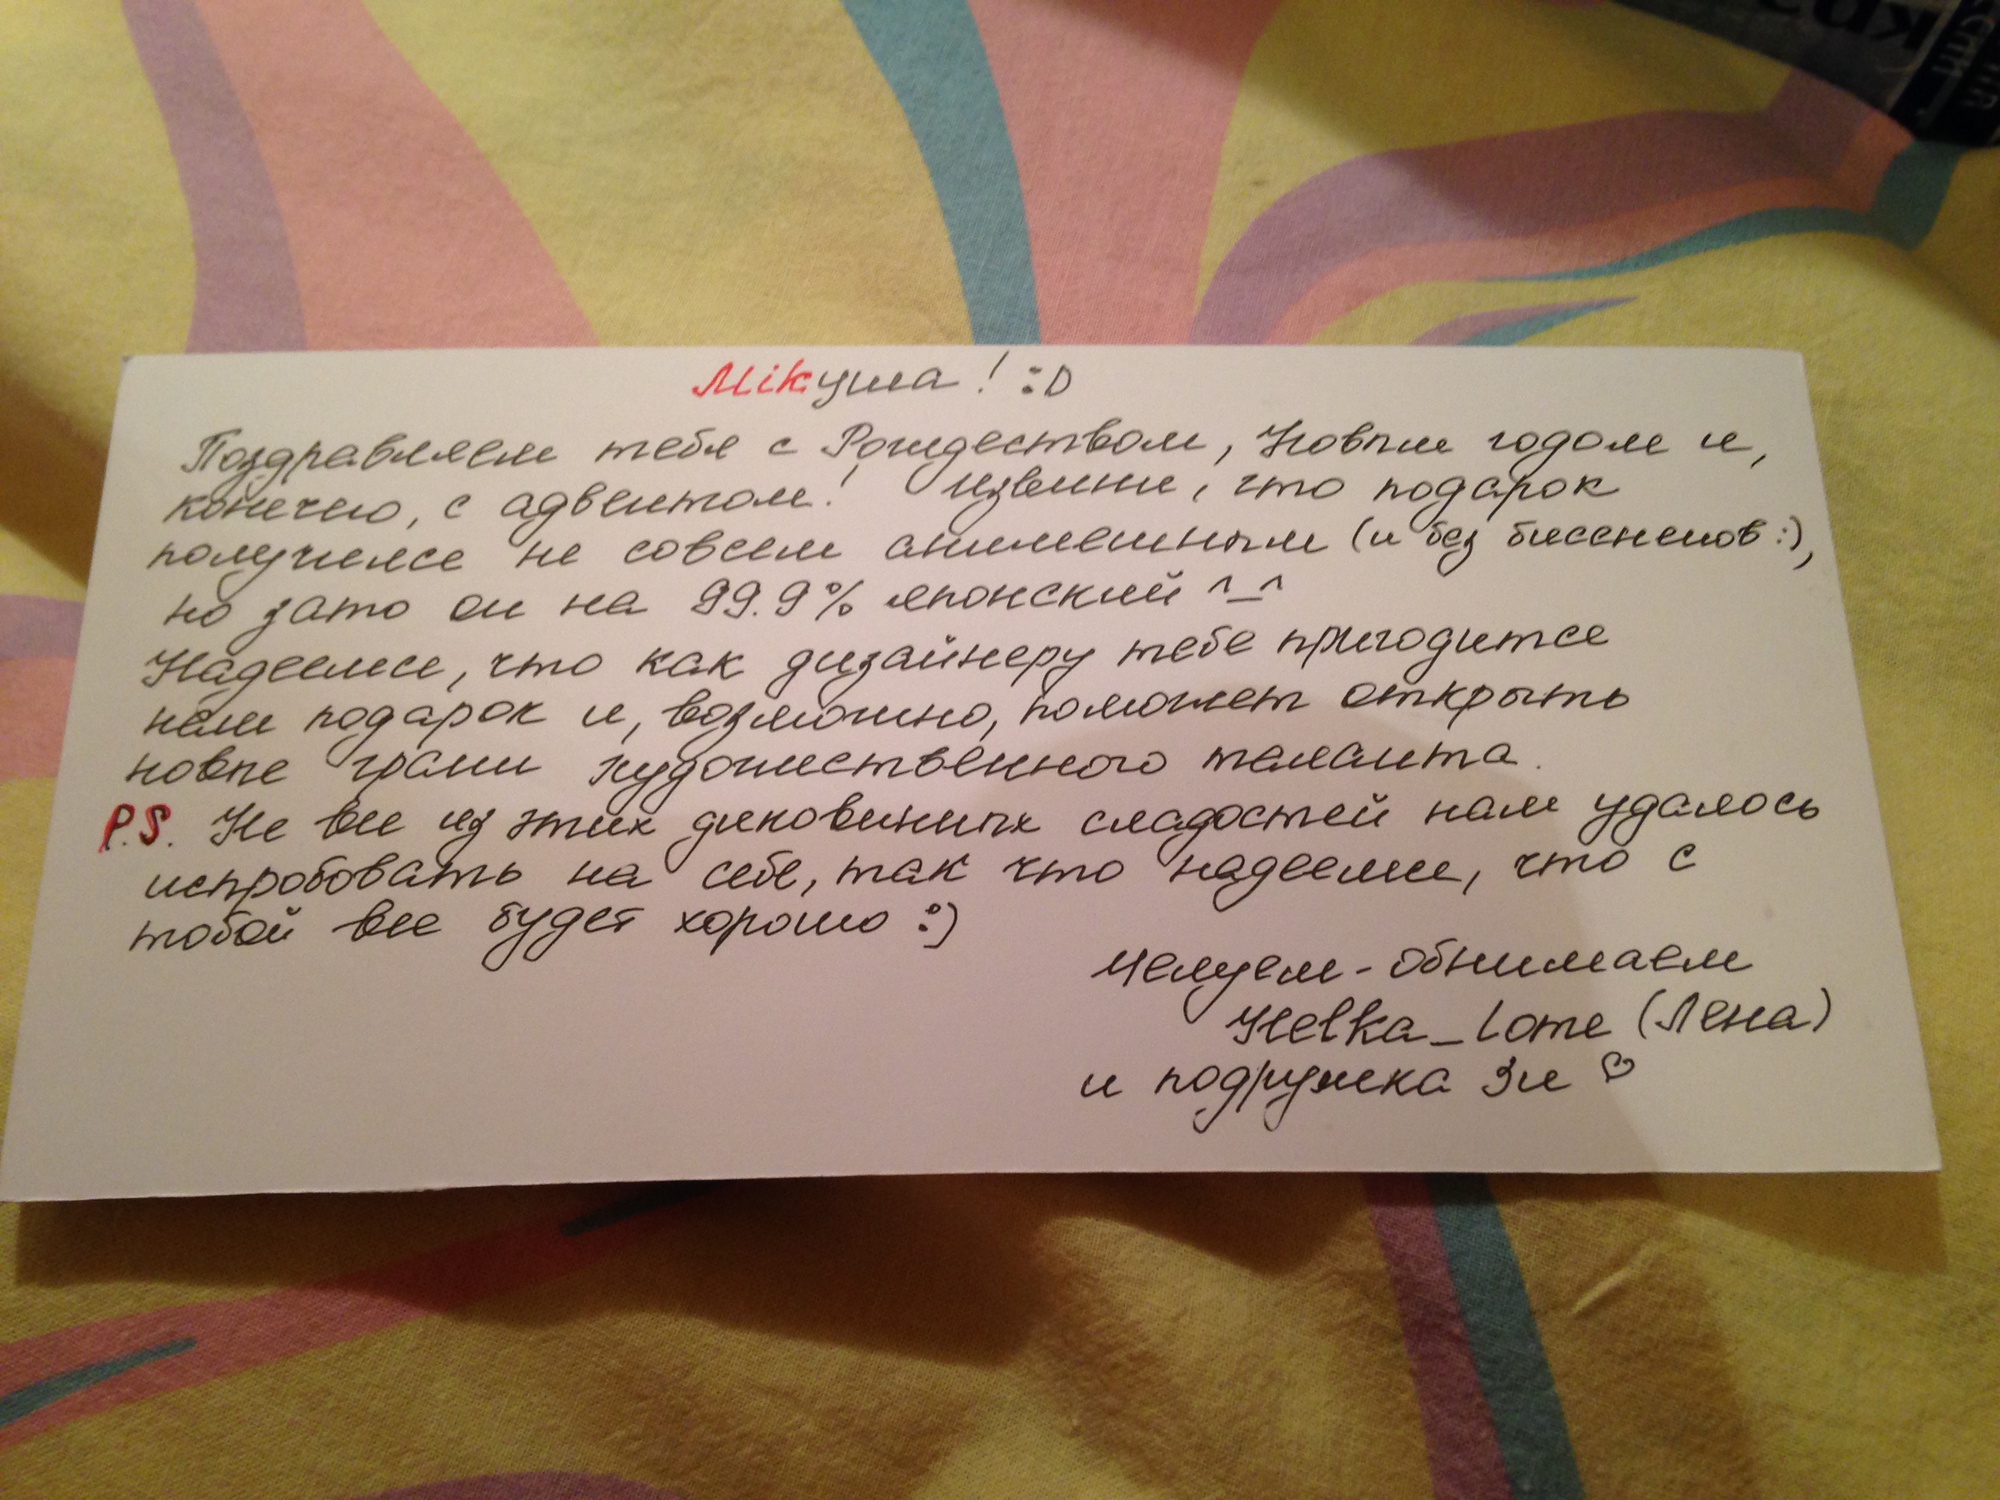 Mikуша! :D
Поздравляем тебя с Рождеством, Новым годом и,
конечно, с адвентом! Извини, что подарок
получился не совсем анимешным (и без бисененов :),
но зато он на 99.9% японский ^_^
Надеемся, что как дизайнеру тебе пригодится
наш подарок и, возможно, поможет открыть
новые грани художественного таланта.
P.S. Не все из этих диковинных сладостей нам удалось
испробовать на себе, так что надеемся, что с
тобой все будет хорошо :)
Целуем-обнимаем
Helka_lome (Лена)
и подружка Зи ♡